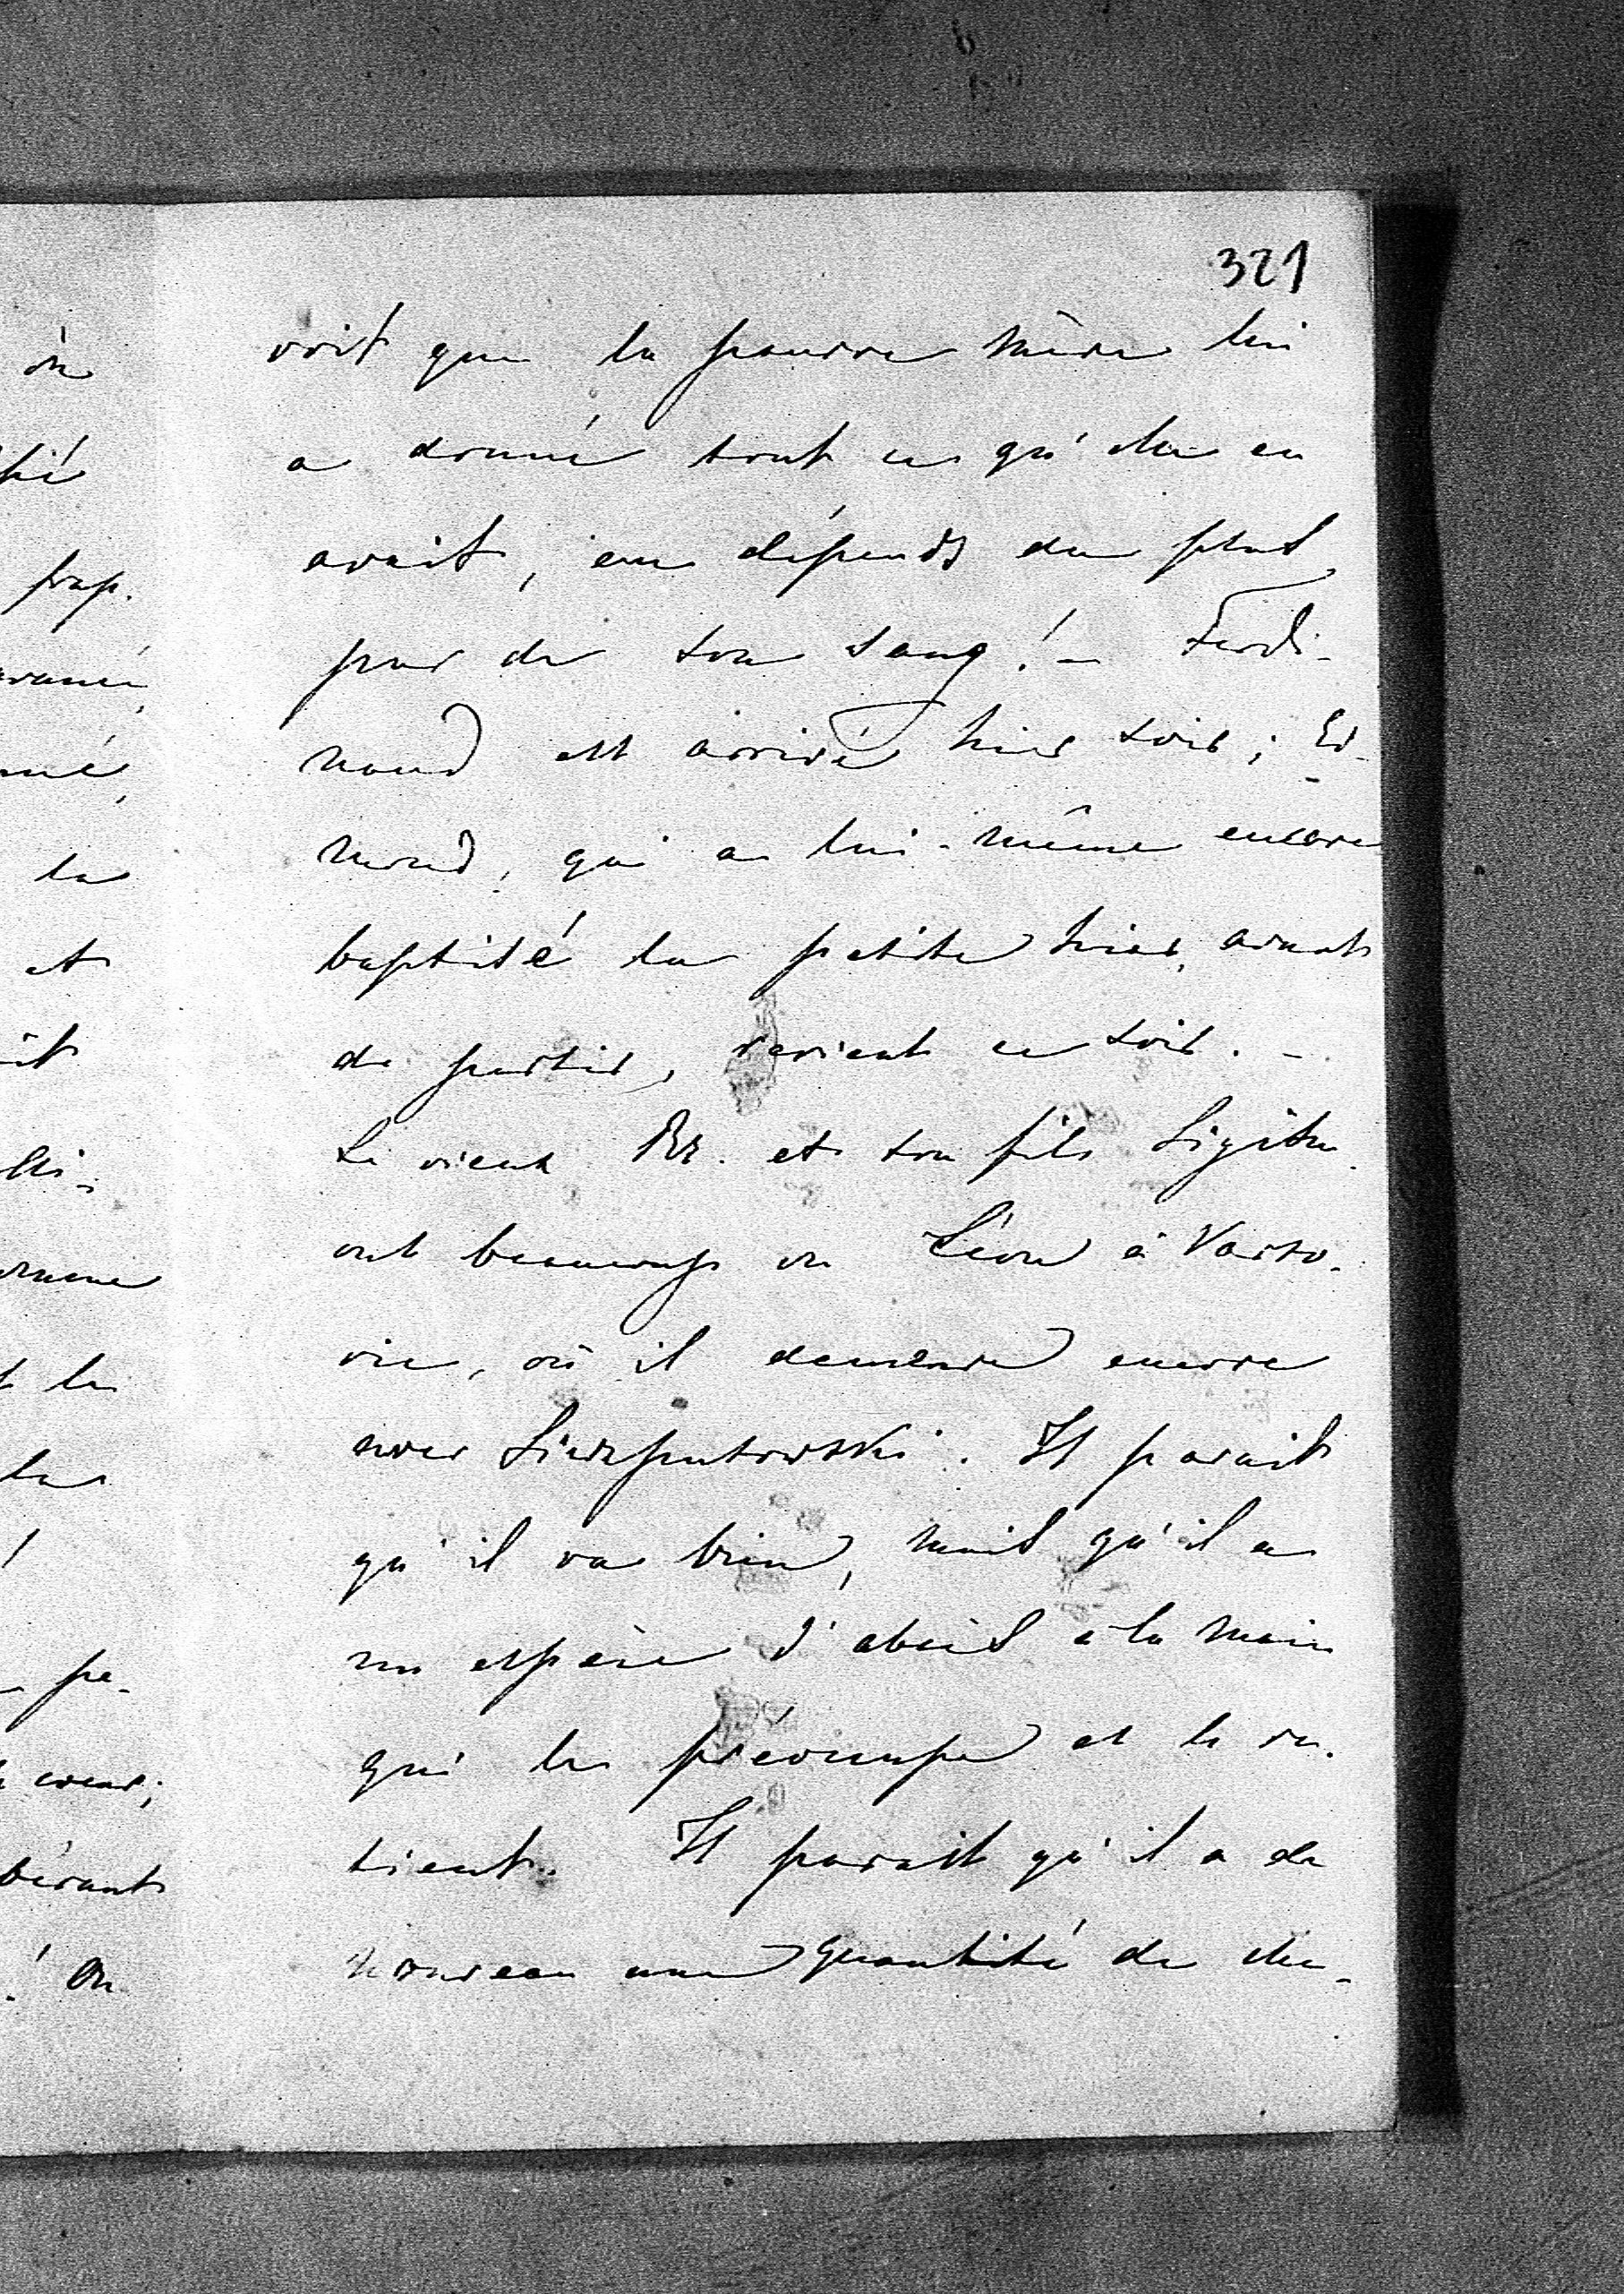 321
voit que la pauvre mère lui
a donné tout ce qu'elle en
avait, aux dépends du plus
pur de son sang! – Ferdi-
nand est arrivé hier soir; Ed-
mond, qui a lui-même encore
baptisé la petite hier, avant
de partir, revient ce soir. –
Le vieux Br. et son fils
ont beaucoup vu Léon à Varso-
vie, où il demeure encore
avec Sierzputowski. Il parait
qu'il va bien, mais qu'il a
un espèce d'abcès à la main
qui le préoccupe et le re-
tient. Il parait qu'il a de
nouveau une quantité de che-